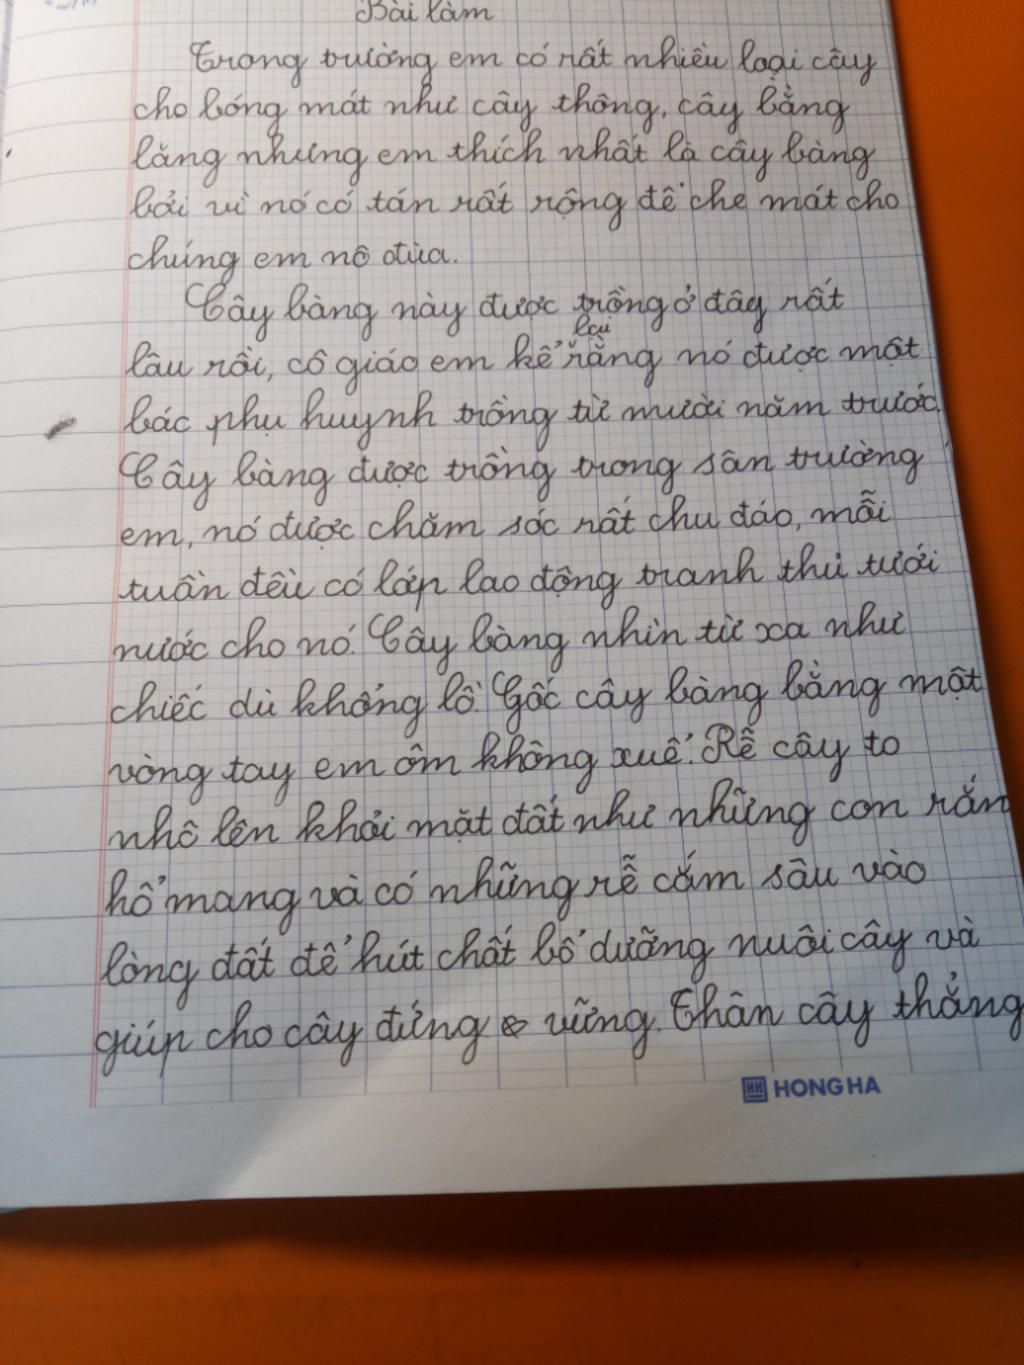 Bài làm
Trong trường em có rất nhiều loại cây
cho bóng mát như cây thông, cây bằng
lăng nhưng em thích nhất là cây bàng
bởi vì nó có tán rất rộng để che mát cho
chúng em nô đùa.
Cây bàng này được trồng ở đây rất
lâu rồi, cô giáo em kể lại rằng nó được một
bác phụ huynh trồng từ mười năm trước.
Cây bàng được trồng trong sân trường
em, nó được chăm sóc rất chu đáo, mỗi
tuần đều có lớp lao động tranh thủ tưới
nước cho nó. Cây bàng nhìn từ xa như
chiếc dù khổng lồ. Gốc cây bàng bằng một
vòng tay em ôm không xuể. Rễ cây to
nhô lên khỏi mặt đất như những con rắn
hổ mang và có những rễ cắm sâu vào
lòng đất để hút chất bổ dưỡng nuôi cây và
giúp cho cây đứng vững. Thân cây thẳng
HONG HA